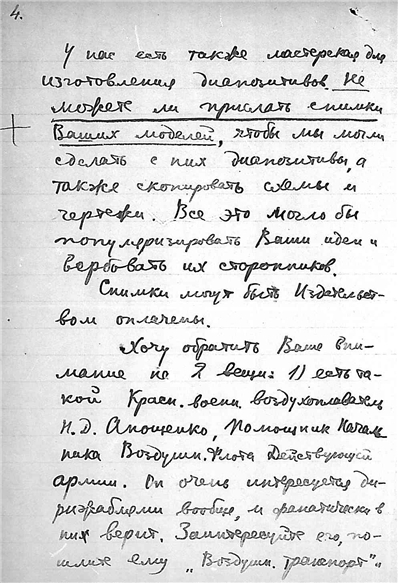 4.
У нас есть также мастерская для
изготовления диапозитивов. Не
можете ли прислать снимки
Ваших моделей, чтобы мы могли
сделать с них диапозитивы, а
также скопировать схемы и
чертежи. Все это могло бы
популяризировать Ваши идеи и
вербовать их сторонников.
Снимки могут быть Издательст-
вом оплачены.
Хочу обратить Ваше вни-
мание на 2 вещи: 1) есть та-
кой Красн. воен. воздухоплаватель
Н. Д. Анощенко, Помощник Началь
ника Воздушн. Флота Действующей
армии. Он очень интересуется ди-
рижаблями вообще, и фанатически в
них верит. Заинтересуйте его, по-
шлите ему „Воздушн. транспорт"